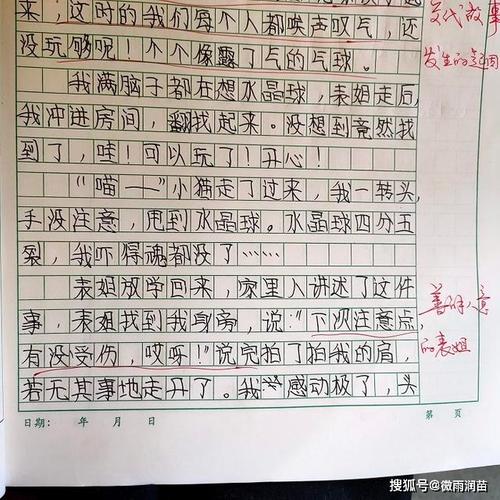 来！这时的我们每个人都唉声叹气，还
没玩够呢！个个像露了气的气球。
我满脑子都在想水晶球，表姐走后，
我冲进房间，翻找起来。没想到竟然找
到了，哇！可以玩了！开心！
“喵——”小猫走了过来，我一转头，
手没注意，甩到水晶球。水晶球四分五
裂，我吓得魂都没了……
表姐放学回来，家里人讲述了这件
事，表姐找到我身旁，说：“下次注意点，
有没受伤，哎呀！”说完拍了拍我的肩，
若无其事地走开了。我感动极了，头
交代故事
发生的起因
善解人意
的表姐
日期： 年 月 日
第 页
搜狐号@微雨润苗